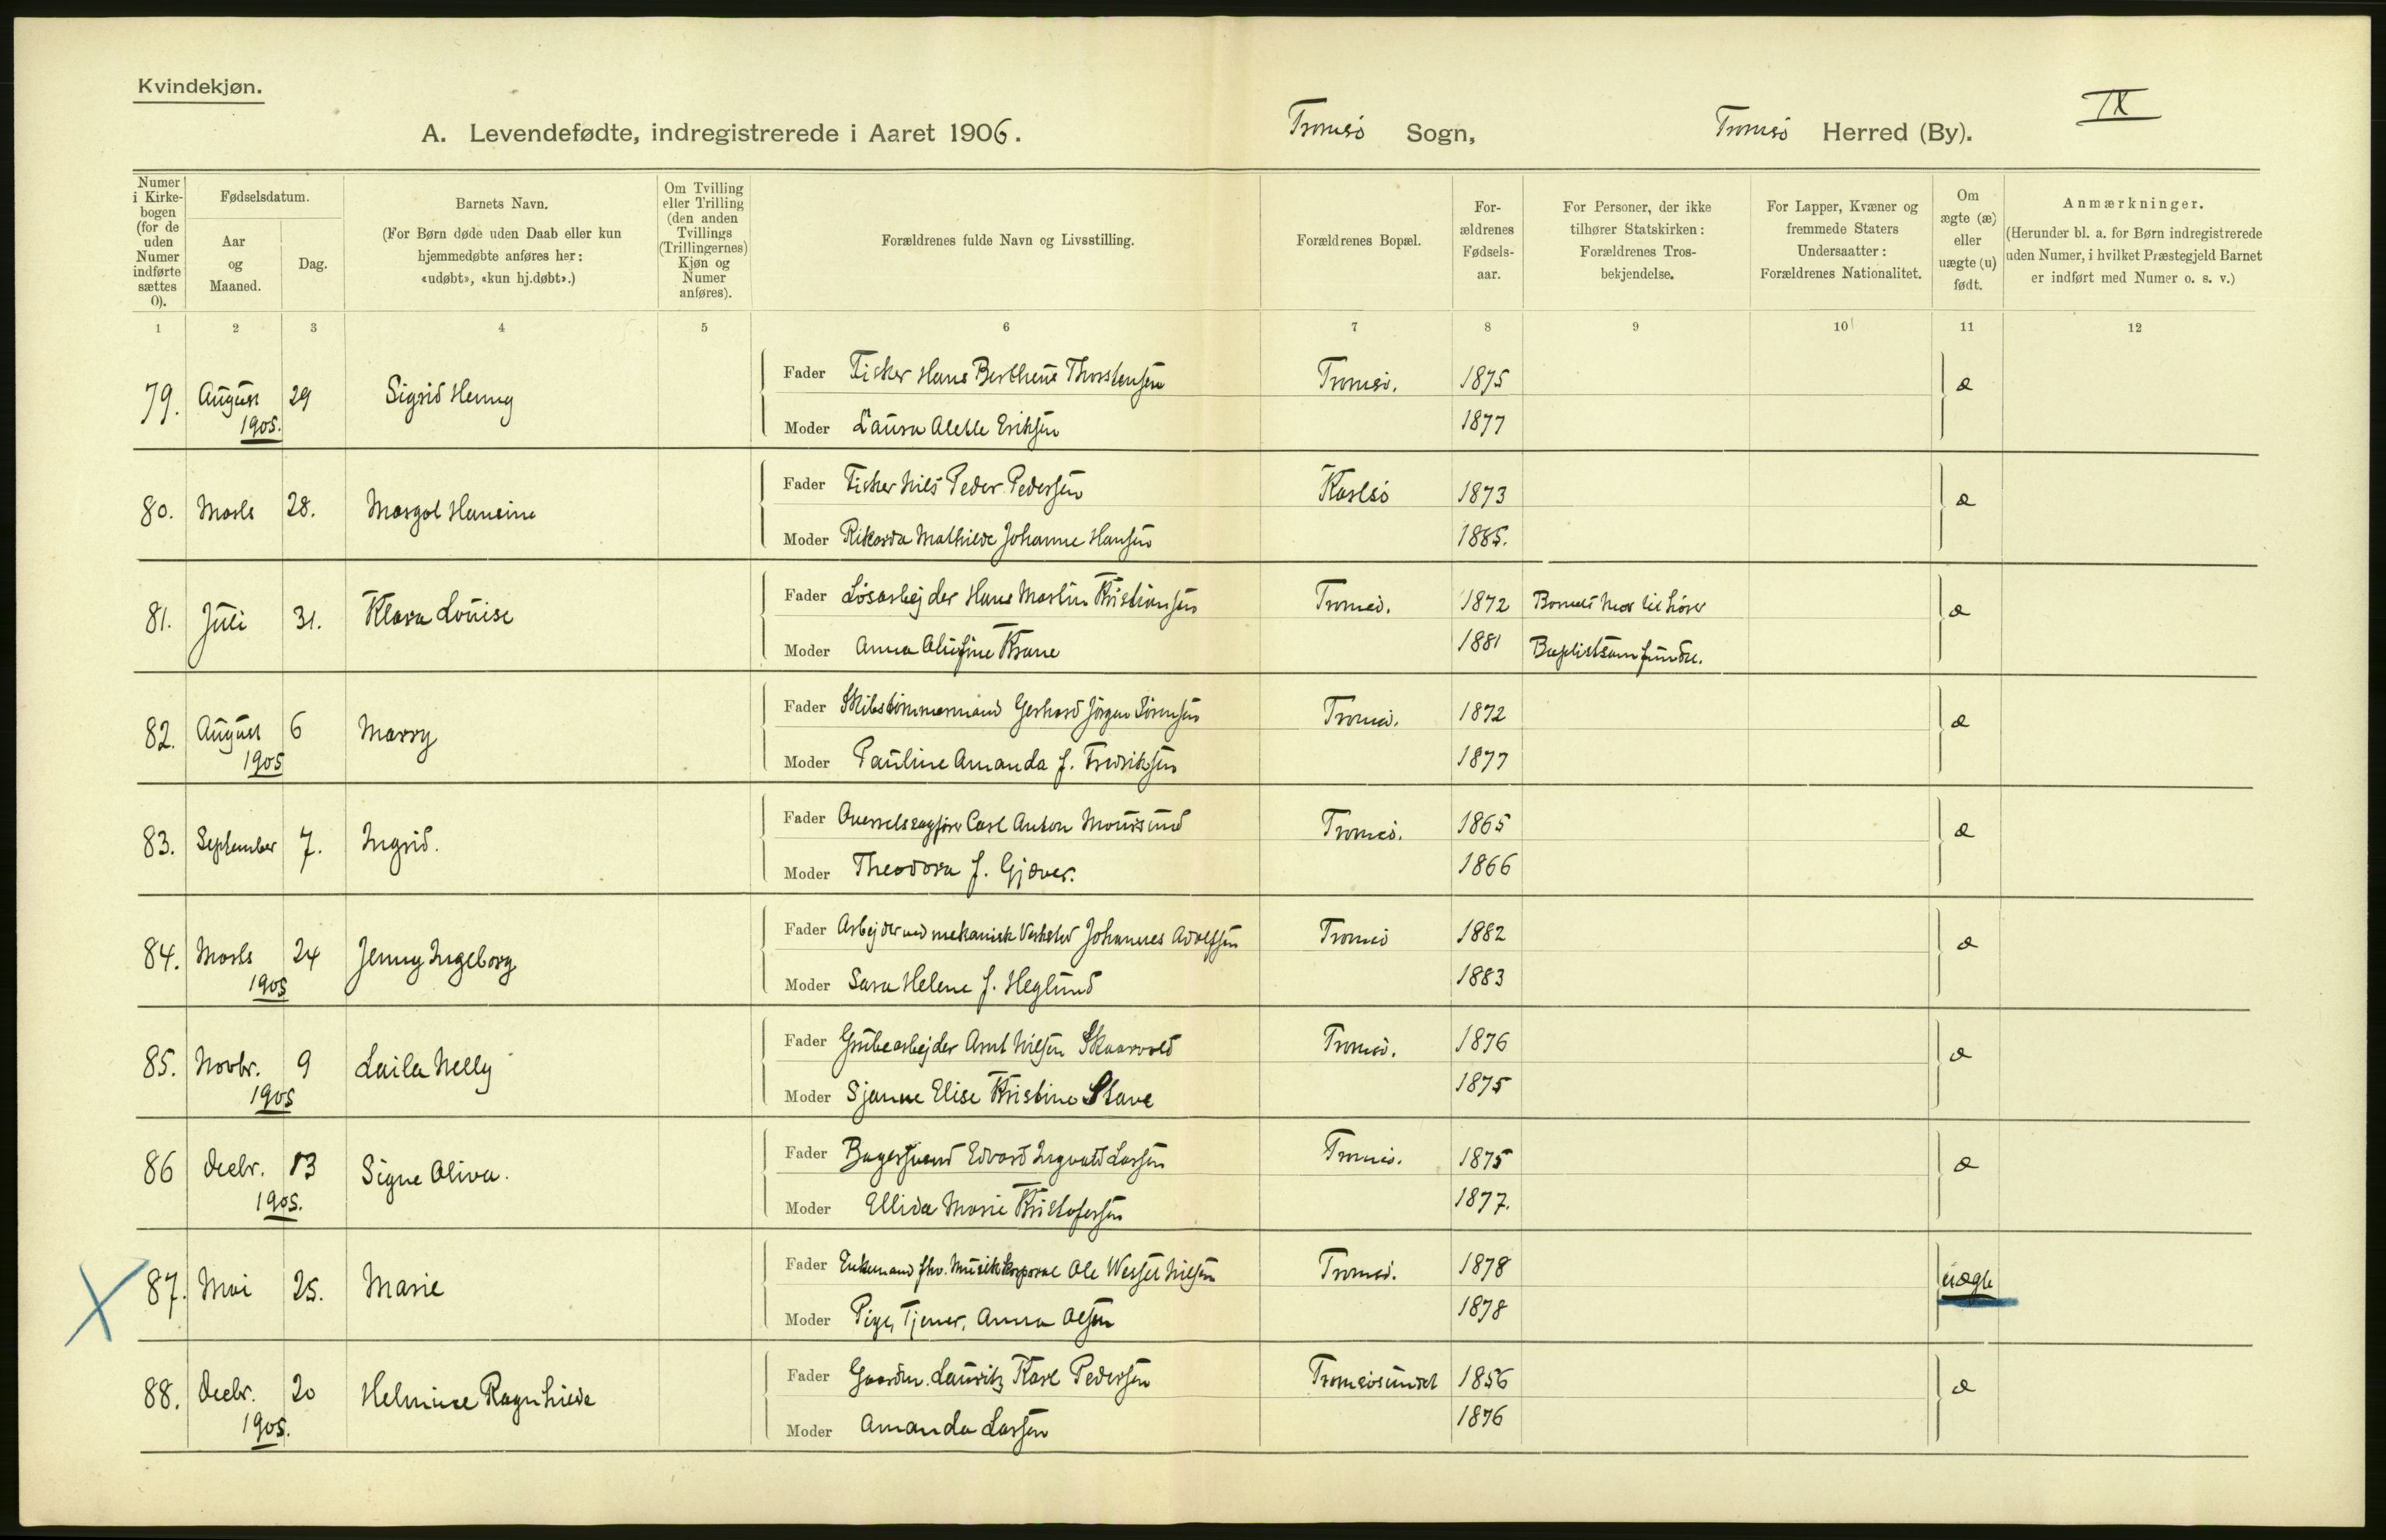 Kvindekjøn.
IX
A. Levendefødte, indregistrerede i Aaret 1906. Tromsø Sogn, Tromsø Herred (By).
Numer i Kirkebogen (for de uden Numer indførte sættes 0).
Fødselsdatum.
Aar og Maaned.
Dag.
Barnets Navn.
(For Børn døde uden Daab eller kun
hjemmedøbte anføres her:
«udøbt», «kun hj.døbt».)
Om Tvilling
eller Trilling
(den anden
Tvillings
(Trillingernes)
Kjøn og
Numer
anføres).
Forældrenes fulde Navn og Livsstilling.
Forældrenes Bopæl.
For-
ældrenes
Fødsels-
aar.
For Personer, der ikke
tilhører Statskirken:
Forældrenes Tros-
bekjendelse.
For Lapper, Kvæner og
fremmede Staters
Undersaatter:
Forældrenes Nationalitet.
Om
ægte (æ)
eller
uægte (u)
født.
Anmærkninger.
(Herunder bl. a. for Børn indregistrerede
uden Numer, i hvilket Præstegjeld Barnet
er indført med Numer o. s. v.)
1 2 3 4 5 6 7 8 9 10 11 12
Fader Fisker Hans Bertheus Thorstensen Tromsø. 1875
79. August 29 Sigrid Henny æ
1905.
Moder Laura Aletle Eriksen 1877
Fader Fisker Nils Peder Pedersen Karlsø 1873
80. Marts 28. Margot Hansine æ
Moder Rikarda Mathilde Johanne Hansen 1885.
Fader Løsarbejder Hans Martin Kristiansen Tromsø. 1872 Barnets Mor tilhører
81. Juli 31. Klara Louise æ
Moder Anna Olufine Krane 1881 Baptistsamfundet.
Fader Skibstømmermand Gerhard Jørgen Sørensen Tromsø. 1872
82. August 6 Marry æ
1905
Moder Pauline Amanda f. Fredriksen 1877
Fader Overretssagfører Carl Anton Moursund Tromsø. 1865
83. September 7. Ingrid. æ
Moder Theodora f. Gjæver. 1866
Fader Arbejder ved mekanisk Verksted Johannes Adolfsen Tromsø 1882
84. Marts 24 Jenny Ingeborg æ
1905
Moder Sara Helene f. Heglund 1883
Fader Grubearbejder Arnt Nilsen Skaarvold Tromsø. 1876
85. Novbr. 9 Laila Nelly æ
1905
Moder Sjanne Elise Kristine Stave 1875
Fader Bagersvend Edvard Ingvald Larsen Tromsø. 1875
86 Decbr. 13 Signe Oliva. æ
1905.
Moder Ellida Marie Kristofersen 1877.
Fader Enkemand fhv. Musikkorporal Ole Wessel Nilsen Tromsø. 1878
87. Mai 25. Marie uægte
Moder Pige, Tjener, Anna Olsen 1878
Fader Gaardm. Lauritz Karl Pedersen Tromsøsundet 1856
88. Decbr. 20 Helmine Ragnhilde æ
1905.
Moder Amanda Larsen 1876